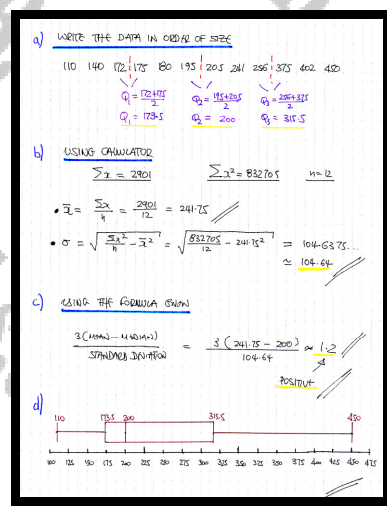 a) WRITE THE DATA IN ORDER OF SIZE
110 140 172 175 180 195 205 241 256 375 402 450
Q₁ = 172+175/2 Q₂ = 195+205/2 Q₃ = 256+375/2
Q₁ = 173.5 Q₂ = 200 Q₃ = 315.5
b) USING CALCULATOR
Σx = 2901 Σx² = 832705 n=12
• x̄ = Σx/n = 2901/12 = 241.75
• σ = √(Σx²/n − x̄²) = √(832705/12 − 241.75²) = 104.6375...
≃ 104.64
c) USING THE FORMULA GIVEN
3(MEAN − MEDIAN)/STANDARD DEVIATION = 3(241.75 − 200)/104.64 ≈ 1.2
POSITIVE
d)
110 173.5 200 315.5 450
100 125 150 175 200 225 250 275 300 325 350 375 400 425 450 475